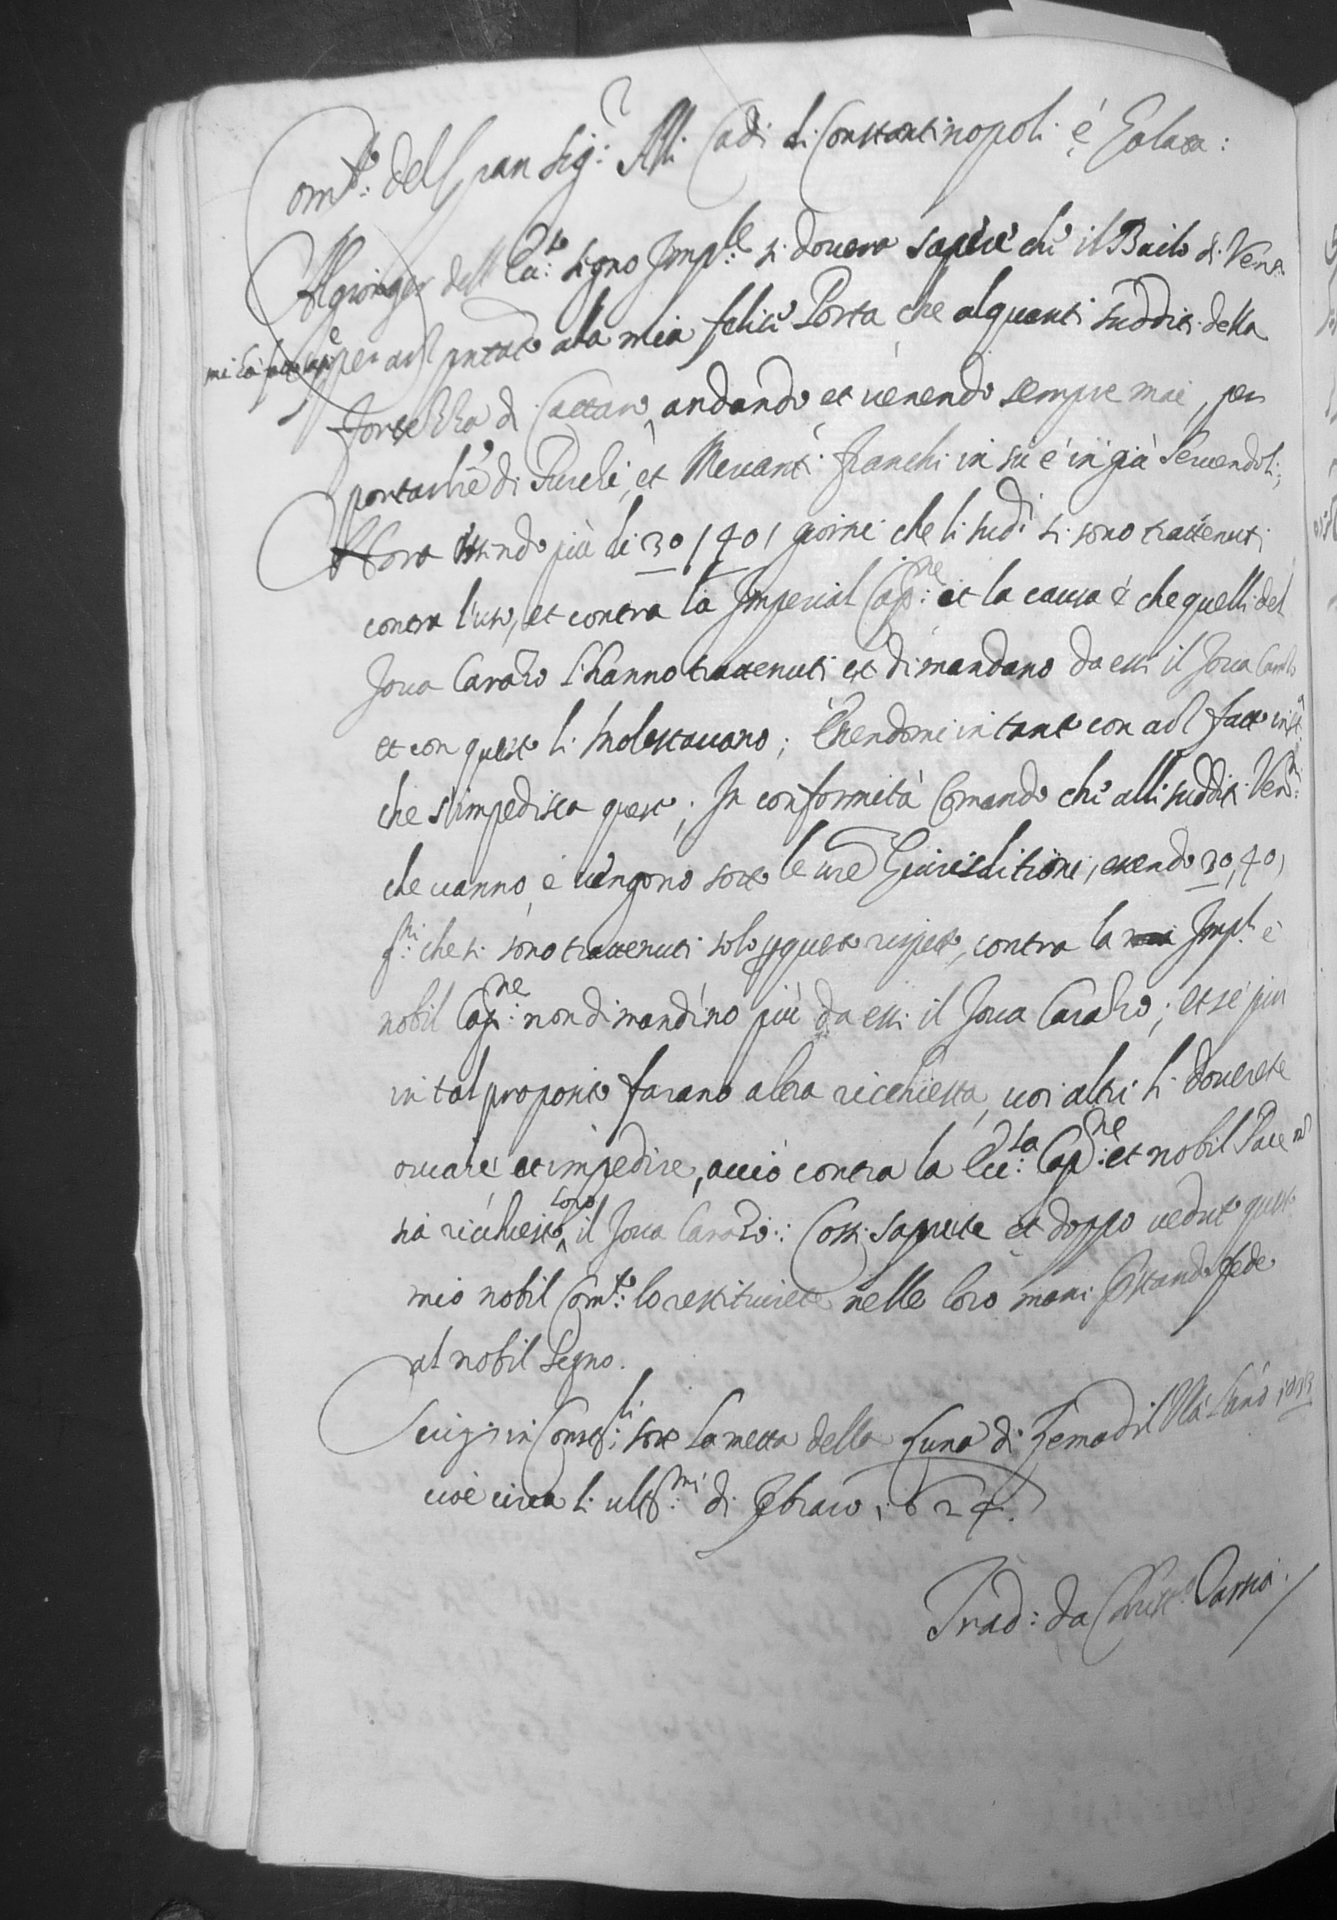 Com.to del Gran Sig.r Alli Cadi di Constantinopoli è Galata:
Al gionger dell' Ecc.so segno Imp.le si doverà sapere che il Bailo di Ven.a
mi hà fatto saper arz p̃ntato alla mia felice Porta che alquanti sudditi della
fortezza di Cattaro, andando et venendo sempre mai, per
portar di Turchi, et Mercanti franchi in sù è in già servendoli;
Hora essendo più di 30 / 40 / giorni che li sud.i si sono trattenuti
contra l'uso, et contra la Imperial Cap.ne et la causa è che quelli del
Jova Carazo l'hanno trattenuti et dimandano da essi il Jova Carazo
et con questo li molestavano; Essendomi in tanto con arz fatto inst.a
che s'impedisca questo; In conformità Comando che alli sudditi Ven.ni
che vanno, è vengono sotto le vr̃e Giurisditioni, essendo 30, 40,
g.ni che si sono trattenuti solo p questo rispetto, contra la Imp.l è
nobil Cap.ne non dimandino più da essi il Jova Carazo; et sè più
in tal proposito farano altra ricchiesta, voi altri li doverete
ovviare et impedire, acciò contra la Ecc.sa Cap.ne et nobil Pace no
sia ricchiesto loro il Jova Carazo: Cossi saprete et doppo veduto questo
mio nobil Com.to lo restituirete nelle loro mani prestando fede
al nobil segno.
Scritto in Const.li sotto la metta della Luna di Zemadil l'ano 1033
cioè circa li ult.mi di Febraro 1624.
Trad: da